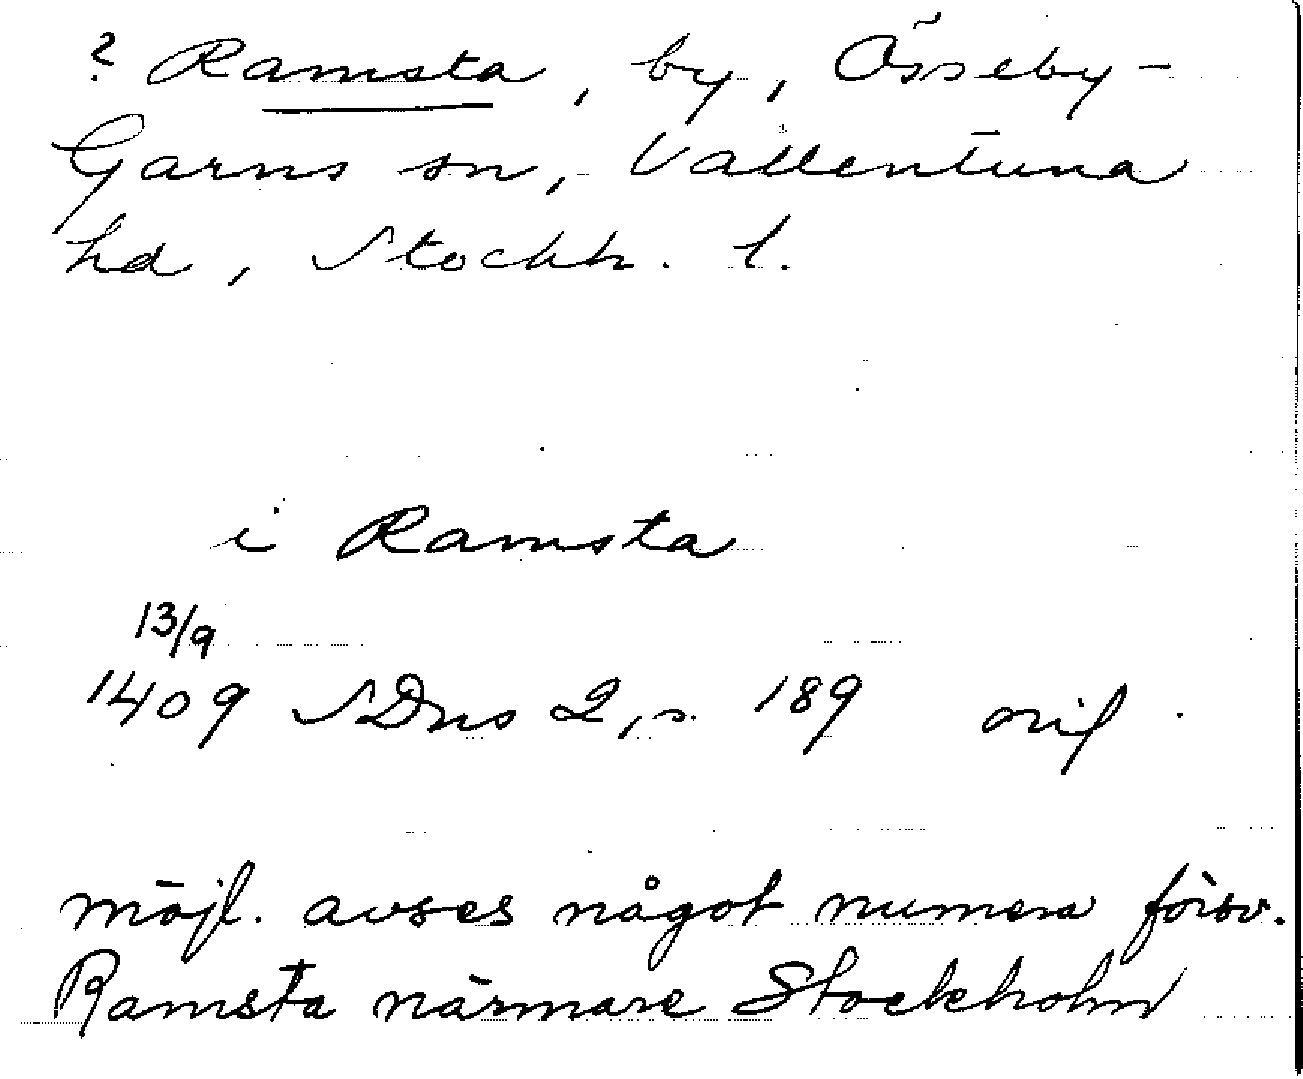 ? Ramsta, by, Össeby-
Garns sn, Vallentuna
hd, Stockh. l.
i Ramsta
13/9
1409 SDns 2, s. 189 orig.
möjl. avses något numera försv.
Ramsta närmare Stockholm